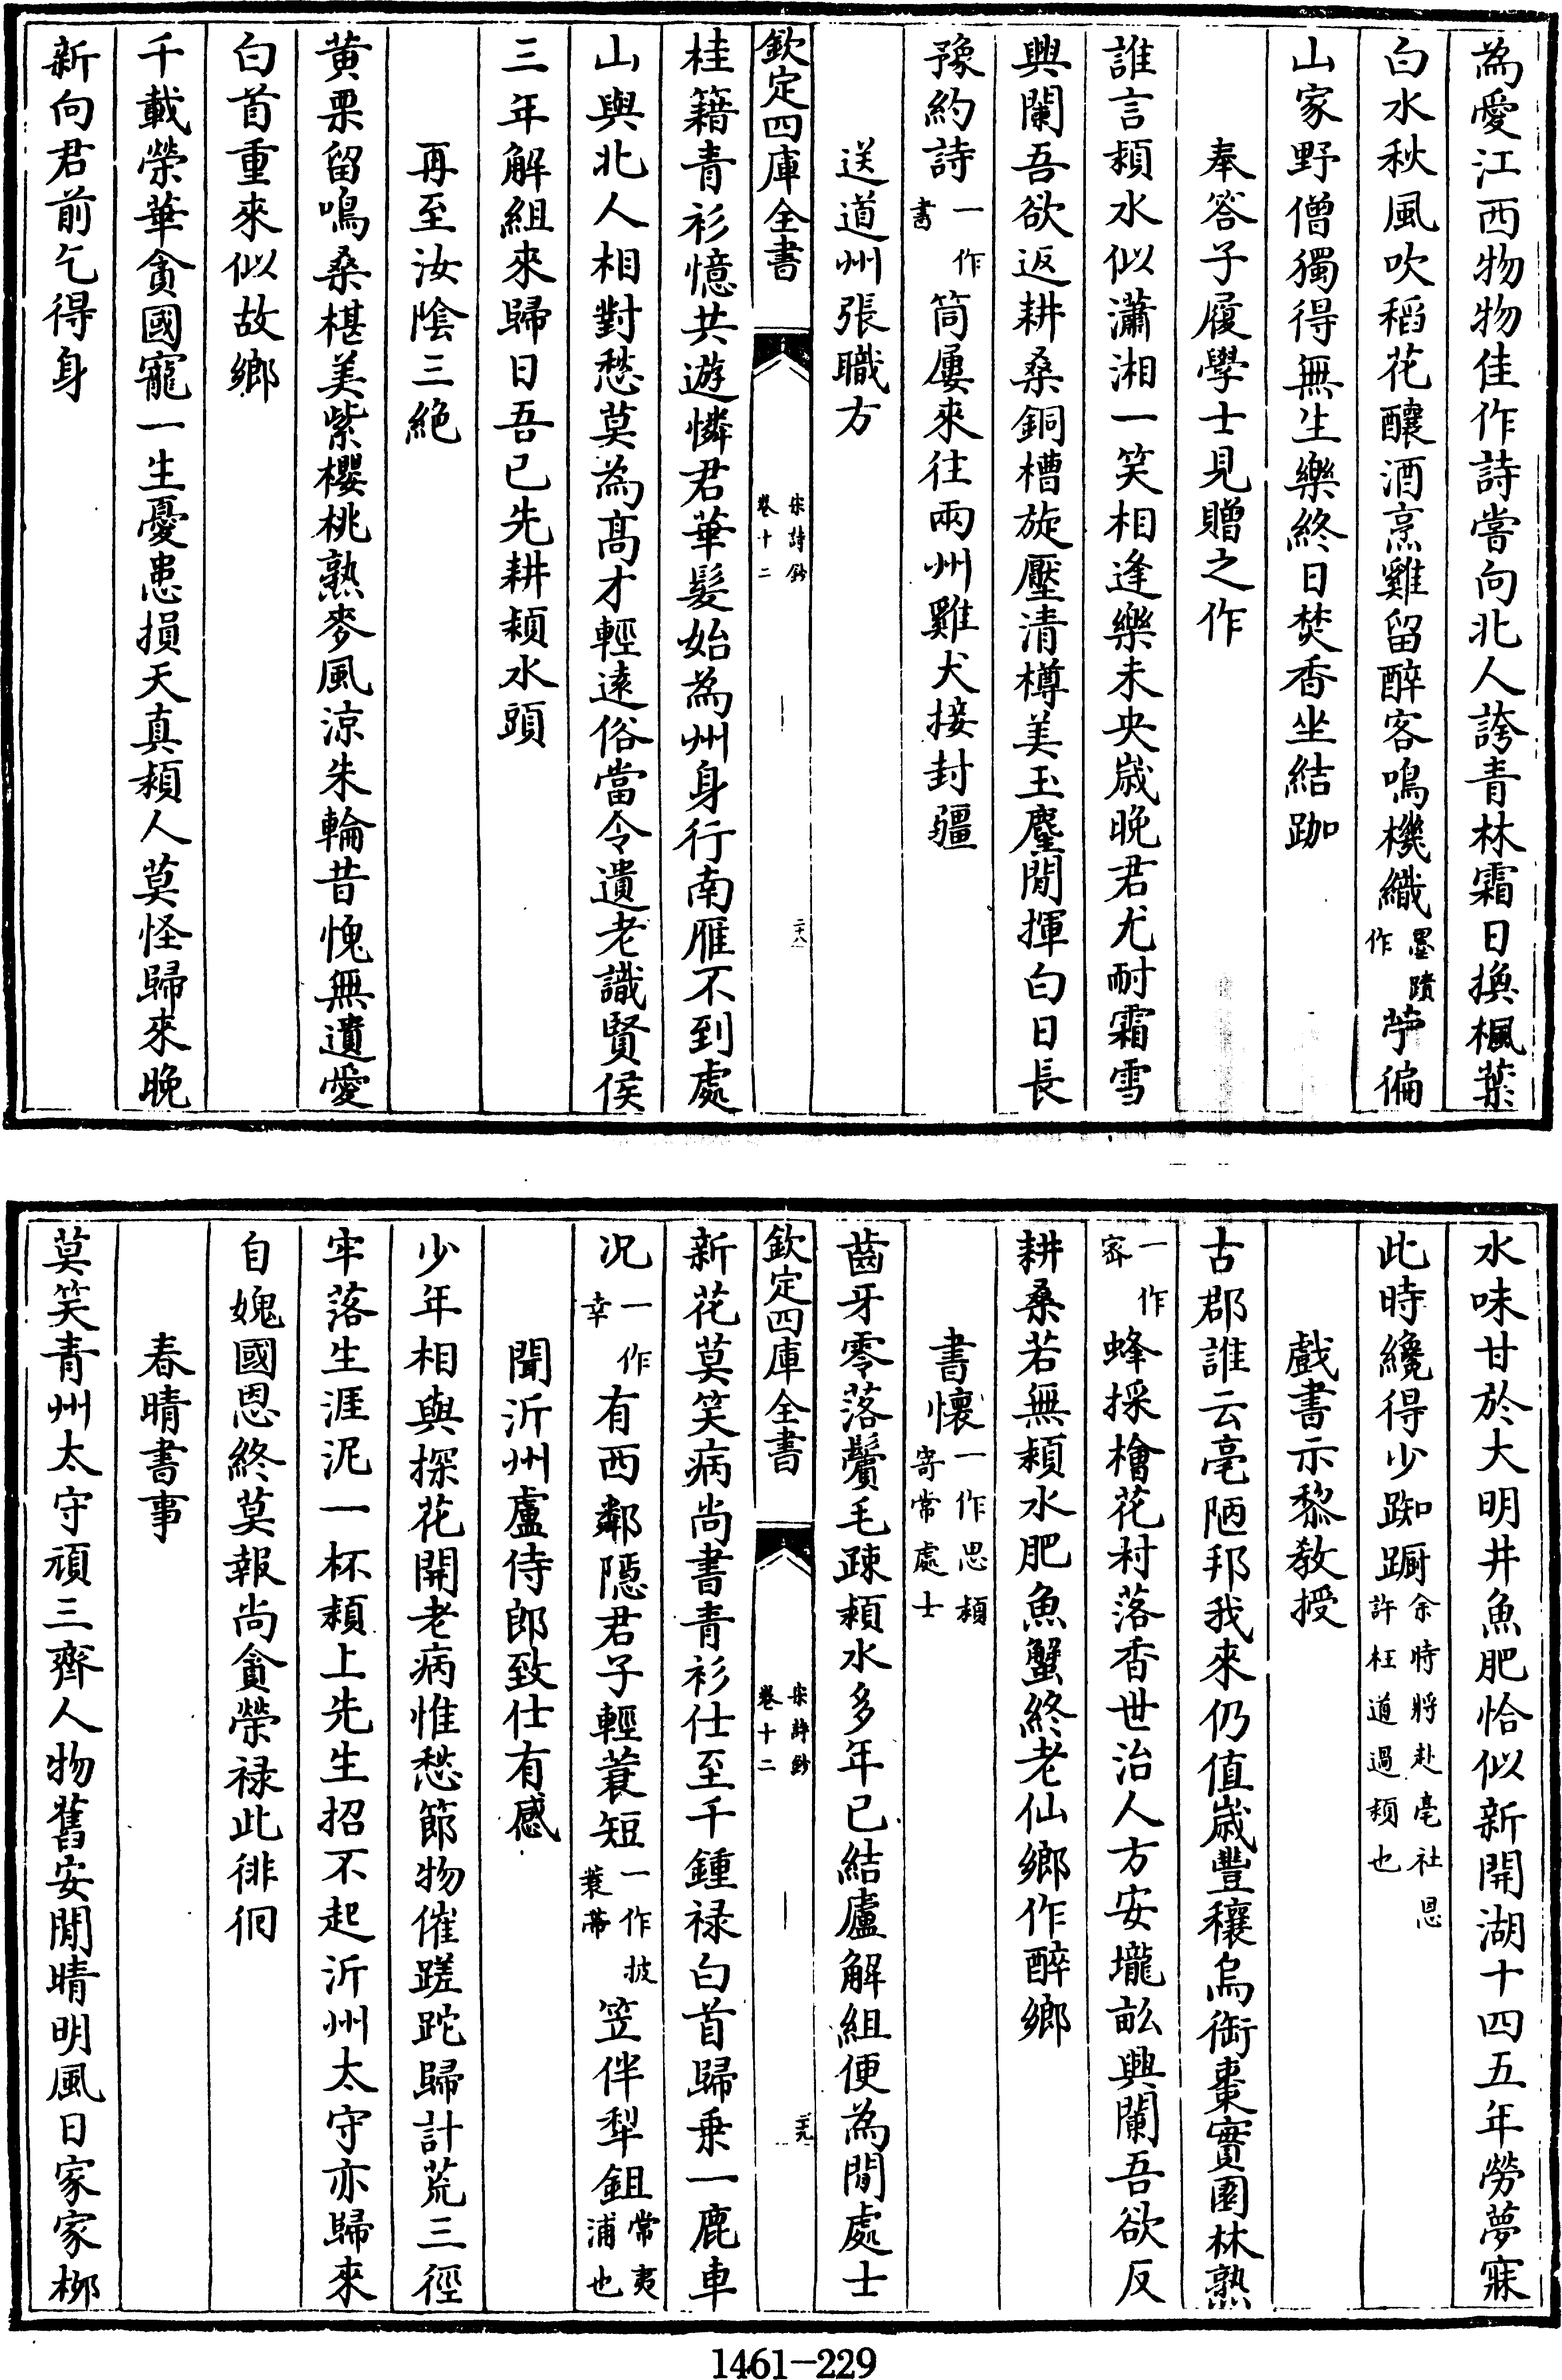 為愛江西物物佳作詩嘗向北人誇青林霜日換楓葉
白水秋風吹稻花釀酒烹雞留醉客鳴機織墨蹟作苧徧
山家野僧獨得無生樂終日焚香坐結跏
奉答子履學士見贈之作
誰言潁水似瀟湘一笑相逢樂未央歲晚君尤耐霜雪
興闌吾欲返耕桑銅槽旋壓清樽美玉麈閒揮白日長
豫約詩一作書筒屢來往兩州雞犬接封疆
送道州張職方
欽定四庫全書
宋詩鈔
卷十二
二十八
桂籍青衫憶共遊憐君華髮始為州身行南雁不到處
山與北人相對愁莫為髙才輕逺俗當令遺老識賢侯
三年解組來歸日吾已先耕潁水頭
再至汝陰三絶
黄栗留鳴桑椹美紫櫻桃熟麥風涼朱輪昔愧無遺愛
白首重來似故鄉
千載榮華貪國寵一生憂患損天真潁人莫怪歸來晚
新向君前乞得身
水味甘於大明井魚肥恰似新開湖十四五年勞夢寐
此時纔得少踟蹰余時將赴亳社恩許枉道過潁也
戲書示黎教授
古郡誰云亳陋邦我來仍值歲豐穰烏銜棗實園林熟
一作密蜂採檜花村落香世治人方安壠畝興闌吾欲反
耕桑若無潁水肥魚蟹終老仙鄉作醉鄉
書懷一作思潁寄常處士
齒牙零落鬢毛疎潁水多年已結廬解組便為閒處士
欽定四庫全書
宋詩鈔
卷十二
二十九
新花莫笑病尚書青衫仕至千鍾禄白首歸乗一鹿車
况一作幸有西鄰隱君子輕蓑短一作披蓑帶笠伴犁鉏常夷甫也
聞沂州盧侍郎致仕有感
少年相與探花開老病惟愁節物催蹉跎歸計荒三徑
牢落生涯泥一杯潁上先生招不起沂州太守亦歸來
自媿國恩終莫報尚貪榮禄此徘徊
春晴書事
莫笑青州太守頑三齊人物舊安閒晴明風日家家栁
1461—229